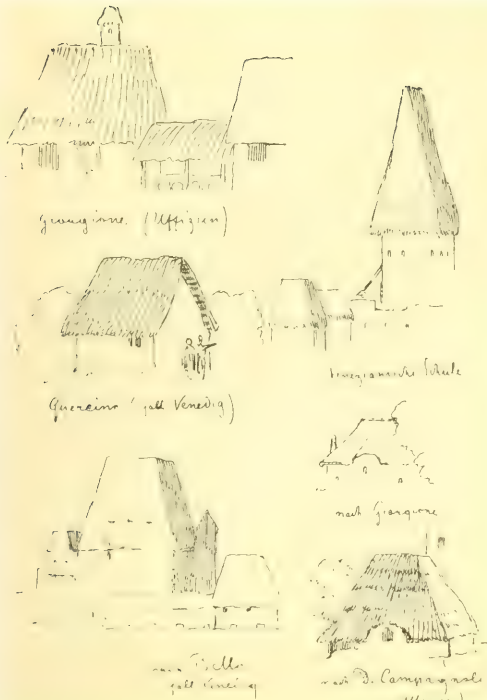 Giorgione (Uffizien)
Guercino (gall Venedig)
Venezianische Schule
nach Giorgione
gall Venedig
nach D. Campagnola